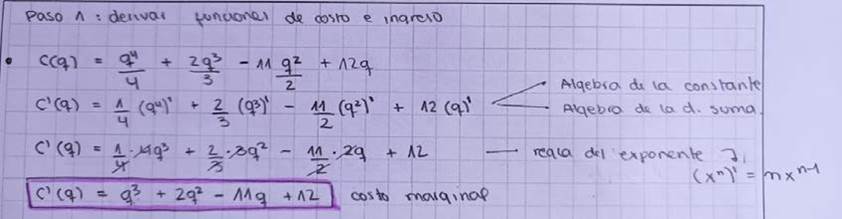 Paso 1 : derivar funciones de costo e ingreso
• C(q) = q⁴/4 + 2q³/3 - 11 q²/2 + 12q
C'(q) = 1/4 (q⁴)' + 2/3 (q³)' - 11/2 (q²)' + 12 (q)'
Algebra de la constante
Algebra de la d. suma.
C'(q) = 1/4 · 4q³ + 2/3 · 3q² - 11/2 · 2q + 12 — regla del exponente
(xⁿ)' = nxⁿ⁻¹
C'(q) = q³ + 2q² - 11q + 12 costo marginal